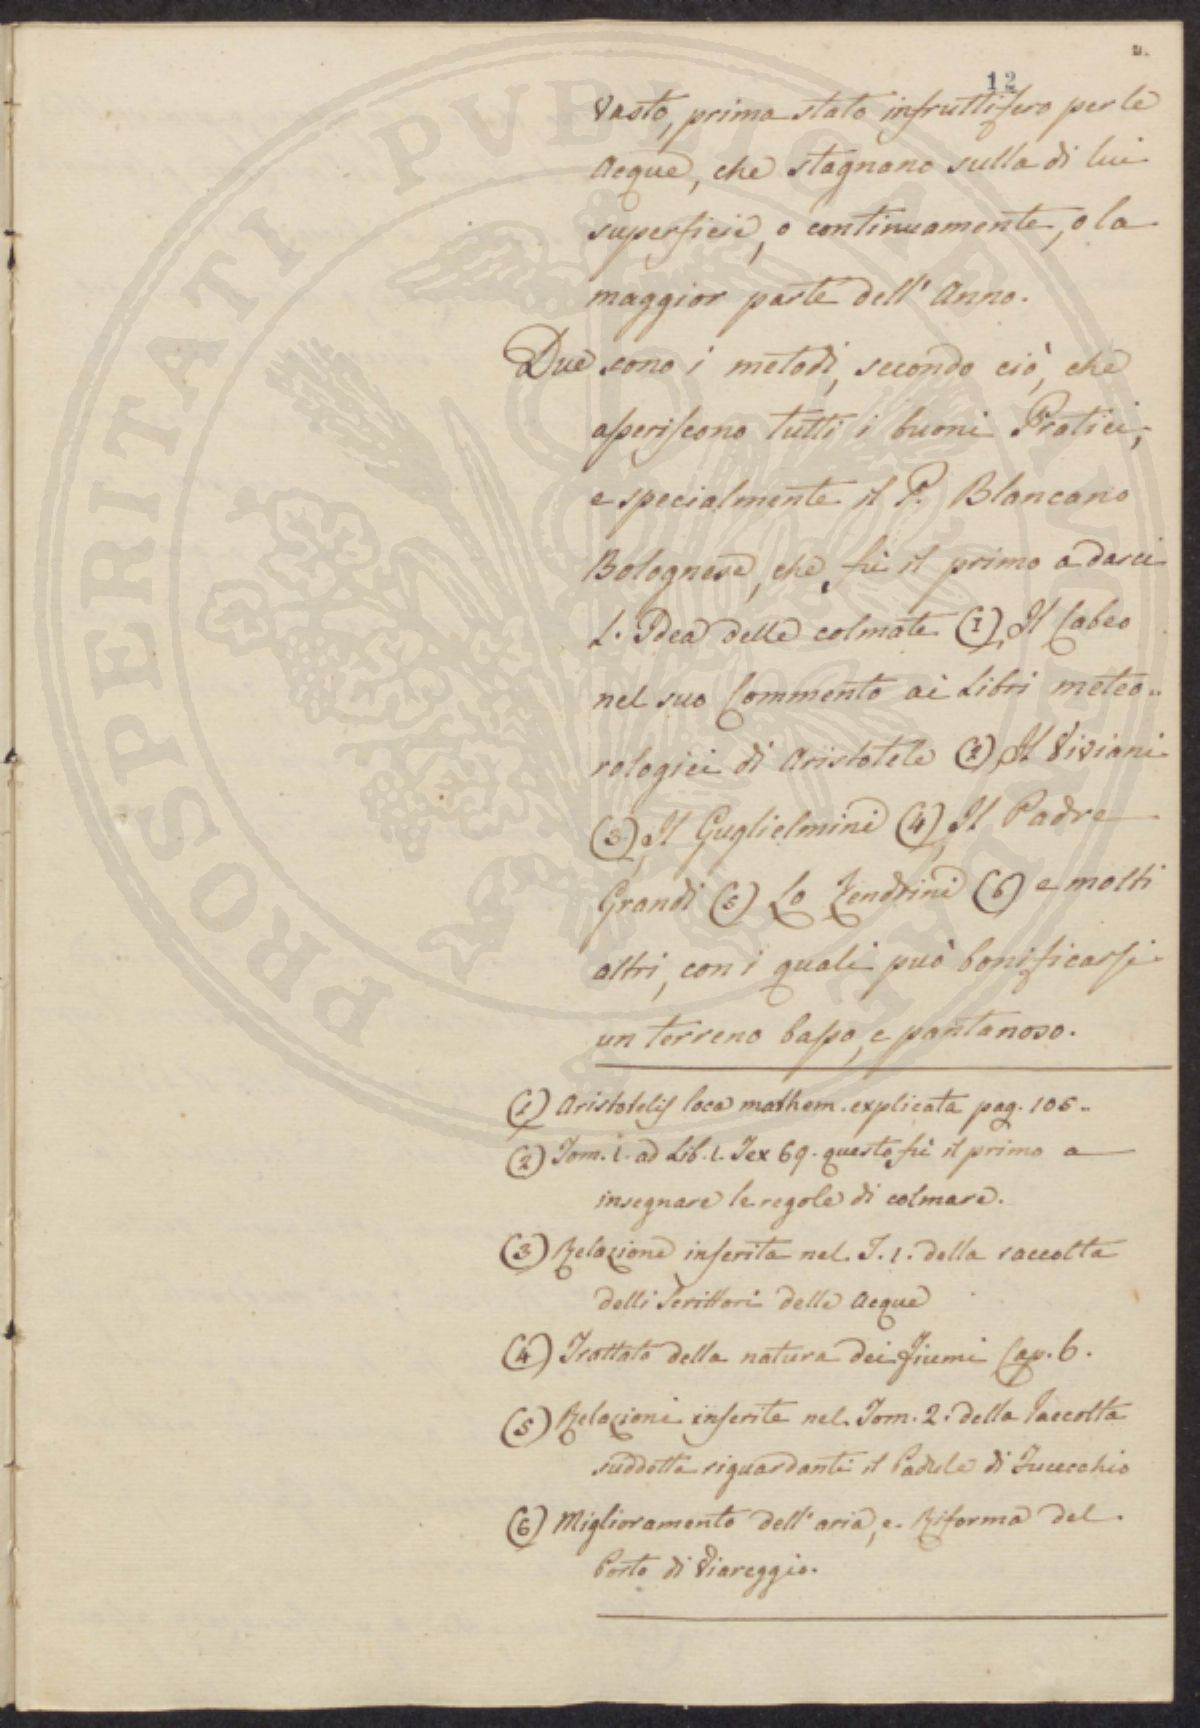 12
vasto, prima stato infruttifero per le
Acque, che stagnano sulla di lui
superficie, o continuamente, o la
maggior parte dell' Anno.
Due sono i metodi, secondo ciò, che
asseriscono tutti i buoni Pratici,
e specialmente il P. Blancano
Bolognese, che fù il primo a darci
L. Idea delle colmate (1), Il Cabeo
nel suo Commento ai Libri meteo..
rologici di Aristotele (2), Il Viviani
(3), Il Guglielmini (4), Il Padre
Grandi (5) Lo Zendrini (6) e molti
altri, con i quali può bonificarsi
un terreno basso, e pantanoso.
(1) Aristotelis loca mathem. explicata pag. 105..
(2) Tom. 1. ad Lib. 1. Tex 69. questo fù il primo a
insegnare le regole di colmare.
(3) Relazione inserita nel. T. 1. della raccolta
delli Scrittori delle Acque
(4) Trattato della natura dei Fiumi Cap. 6.
(5) Relazioni inserite nel. Tom. 2. della Raccolta
suddetta riguardanti il Padule di Fucecchio
(6) Miglioramento dell' aria, e. Riforma del.
Porto di Viareggio.
PROSPERITATI PUBLICAE AUGENDAE